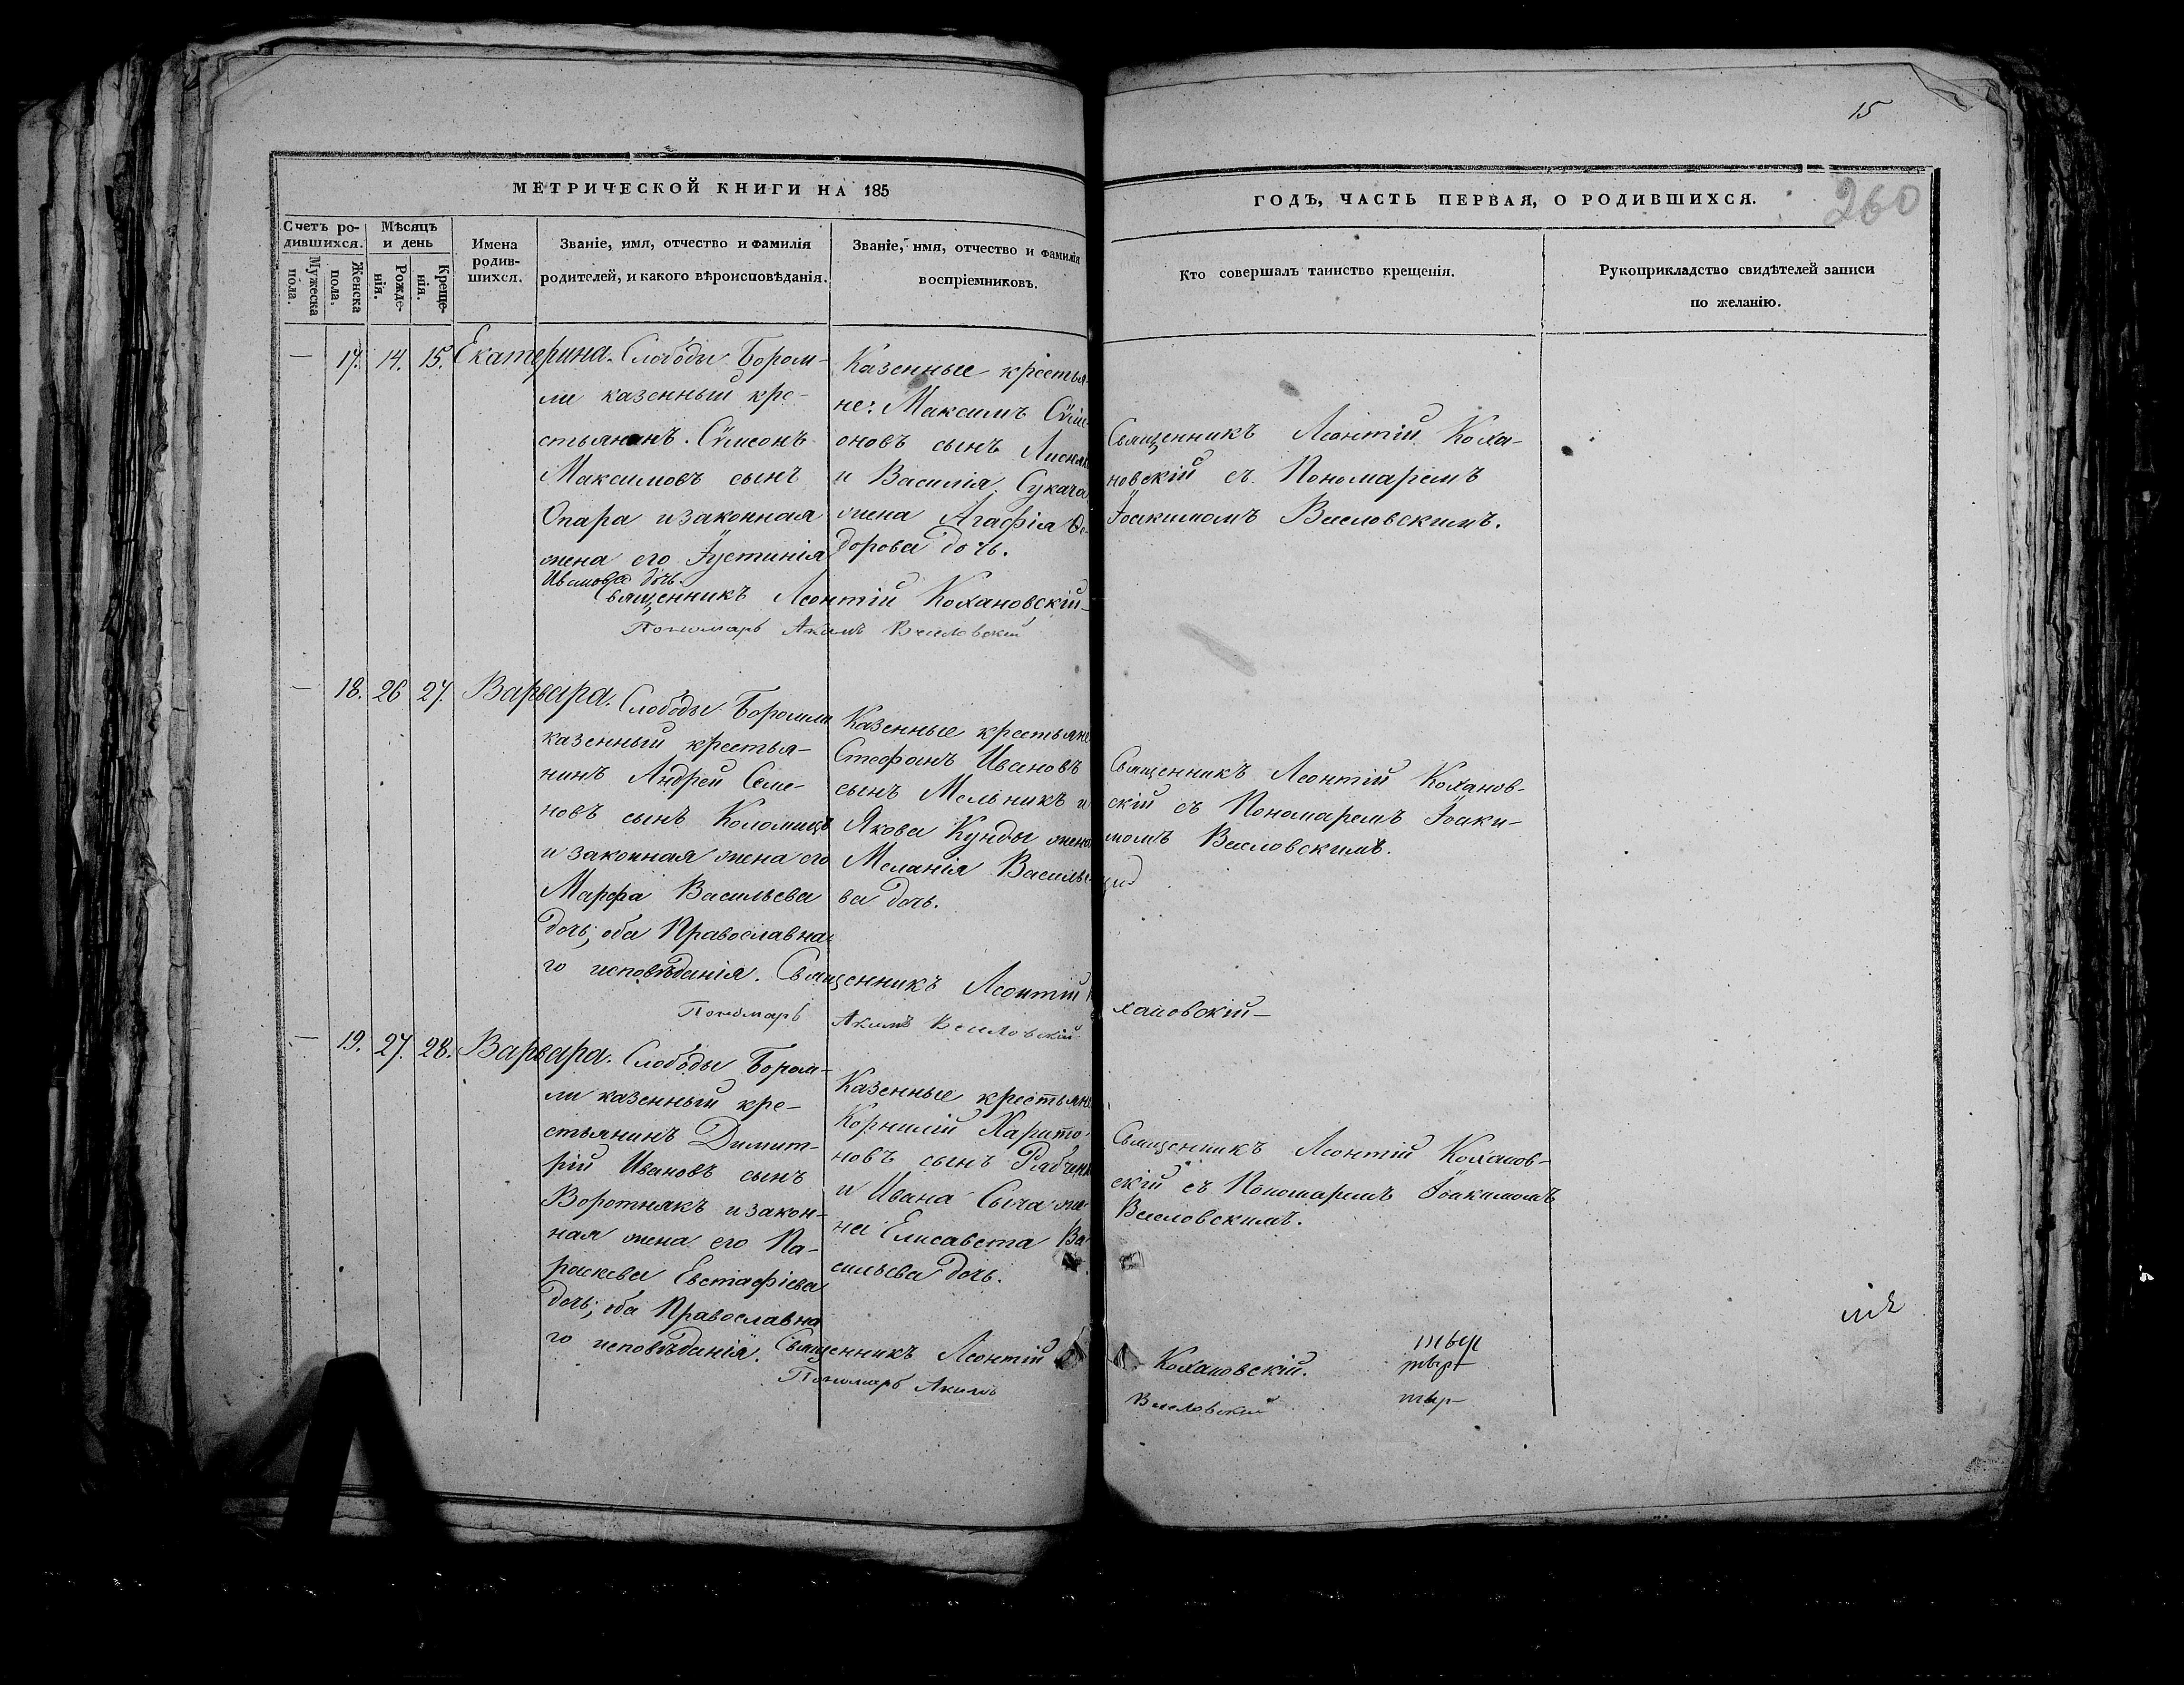 15
260
МЕТРИЧЕСКОЙ КНИГИ НА 185
ГОДЪ, ЧАСТЬ ПЕРВАЯ, О РОДИВШИХСЯ.
Счетъ ро-
дившихся.
Мужеска
пола.
Женска
пола.
Мѣсяцъ
и день
Рожде-
нія.
Креще-
нія.
Имена
родив-
шихся.
Званіе, имя, отчество и фамилія
родителей, и какого вѣроисповѣданія.
Званіе, имя, отчество и фамилія
воспріемниковъ.
Кто совершалъ таинство крещенія.
Рукоприкладство свидѣтелей записи
по желанію.
— 17. 14. 15. Екатерина.
Слободы Бором-
ли казенный кре-
стьянинъ Сѵмеонъ
Максимовъ сынъ
Опара и законная
жена его Іустинія
Иванова дочь.
Казенные крестья-
не: Максимъ Сѵме-
оновъ сынъ
и Василія Сукача
жена Агафія Ѳе-
дорова дочь.
Священникъ Леонтій Коха-
новскій съ Пономаремъ
Іоакимомъ Веселовскимъ.
Священникъ Леонтій Кохановскій
Пономарь Акимъ Веселовскій
— 18. 26 27. Варвара.
Слободы Боромли
казенный крестья-
нинъ Андрей Семе-
новъ сынъ Коломиецъ
и законная жена его
Марфа Васильева
дочь; оба Православна-
го исповѣданія.
Казенные крестьяне
Стефанъ Ивановъ
сынъ Мельникъ и
Якова Кунды жена
Меланія Василье-
ва дочь.
Священникъ Леонтій Коханов-
скій съ Пономаремъ Іоаки-
момъ Веселовскимъ.
Священникъ Леонтій
хановскій
Пономарь Акимъ Веселовскій
— 19. 27. 28. Варвара.
Слободы Бором-
ли казенный кре-
стьянинъ Димит-
рій Ивановъ сынъ
Воротнякъ и закон-
ная жена его Па-
раскева Евстафіева
дочь; оба Православна
го исповѣданія.
Казенные крестьяне
Корнилій Харито-
новъ сынъ
и Ивана Сыча же-
на Елисавета Ва-
сильева дочь.
Священникъ Леонтій Коханов-
скій съ Пономаремъ Іоакимомъ
Веселовскимъ.
Священникъ Леонтій
Кохановскій.
Пономарь Акимъ
Веселовскій